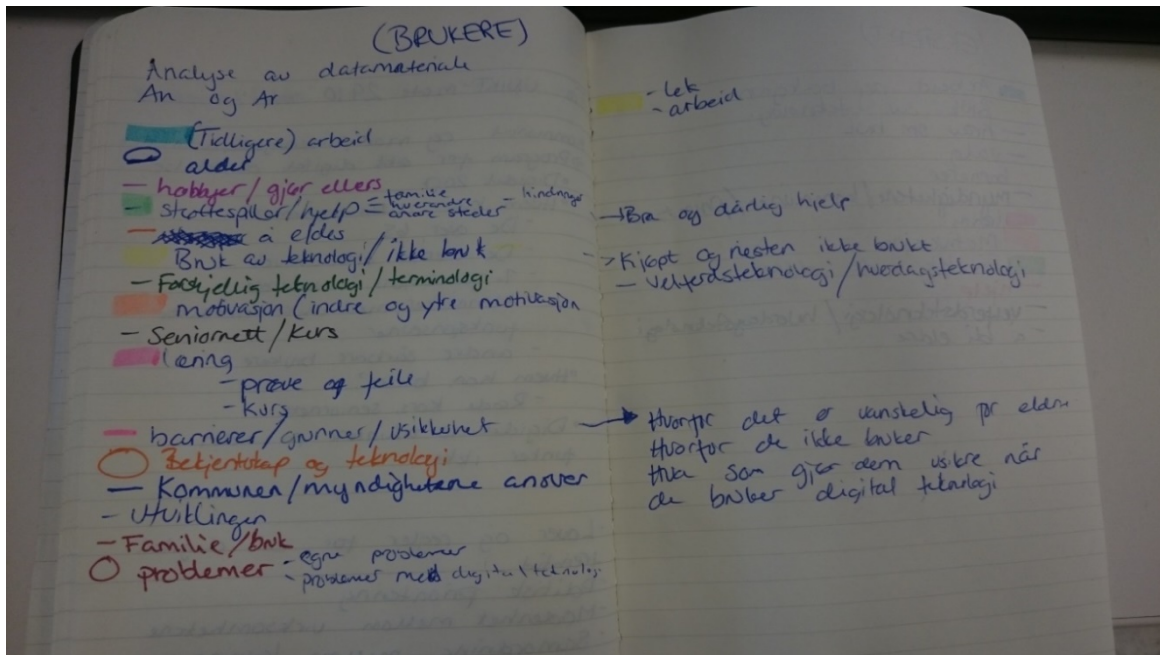 (BRUKERE)
Analyse av datamateriale
An og Ar
(Tidligere) arbeid
alder
- hobbyer/gjør ellers
- støttespiller/hjelp = familie
hverandre
andre steder
- å eldes
Bruk av teknologi/ikke bruk
- Forskjellig teknologi/terminologi
motivasjon (indre og ytre motivasjon
- Seniornett/kurs
læring
- prøve og feile
- kurs
- barrierer/grunner/usikkerhet
Bekjentskap og teknologi
- Kommunen/myndighetene ansvar
- Utviklingen
- Familie/bruk
problemer - egne problemer
- problemer med digital teknologi
- lek
- arbeid
→ Bra og dårlig hjelp
-> Kjøpt og nesten ikke brukt
- velferdsteknologi/hverdagsteknologi
Hvorfor det er vanskelig for eldre
Hvorfor de ikke bruker
Hva som gjør dem usikre når
de bruker digital teknologi